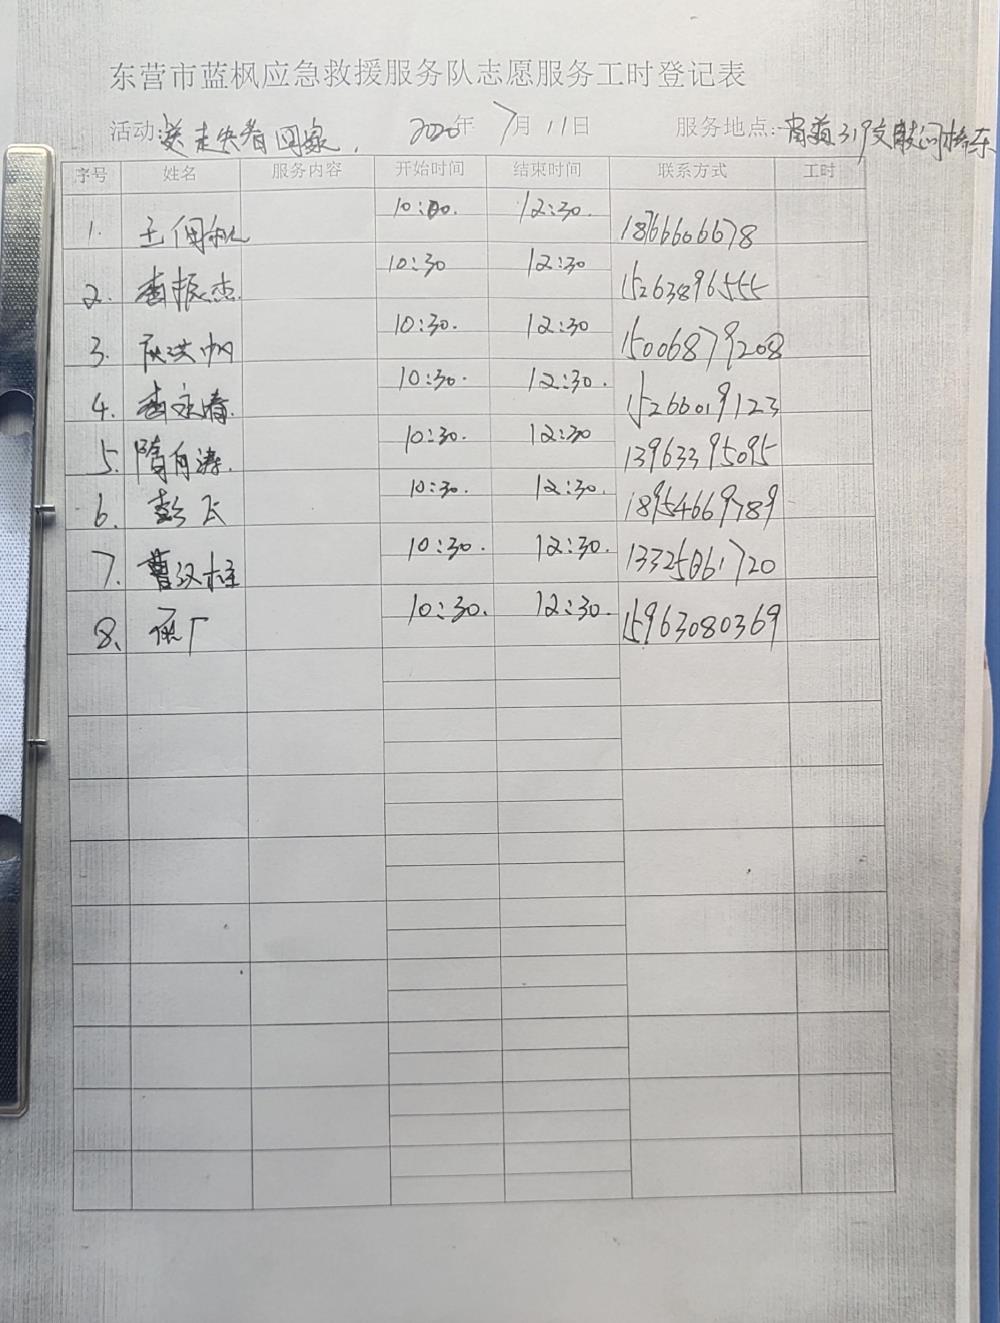 东营市蓝枫应急救援服务队志愿服务工时登记表
活动:送走失者回家. 2020年7月11日 服务地点:省道319支脉河桥东
序号 姓名 服务内容 开始时间 结束时间 联系方式 工时
1. 10:00. 12:30. 18766606678
2. 李振杰. 10:30 12:30 15263896555
3. 10:30. 12:30 15006879208
4. 10:30. 12:30. 15266019123
5. 10:30. 12:30 13963395095
6. 彭飞 10:30. 12:30. 18954669789
7. 曹汉柱 10:30. 12:30. 13325061720
8. 10:30. 12:30. 15963080369